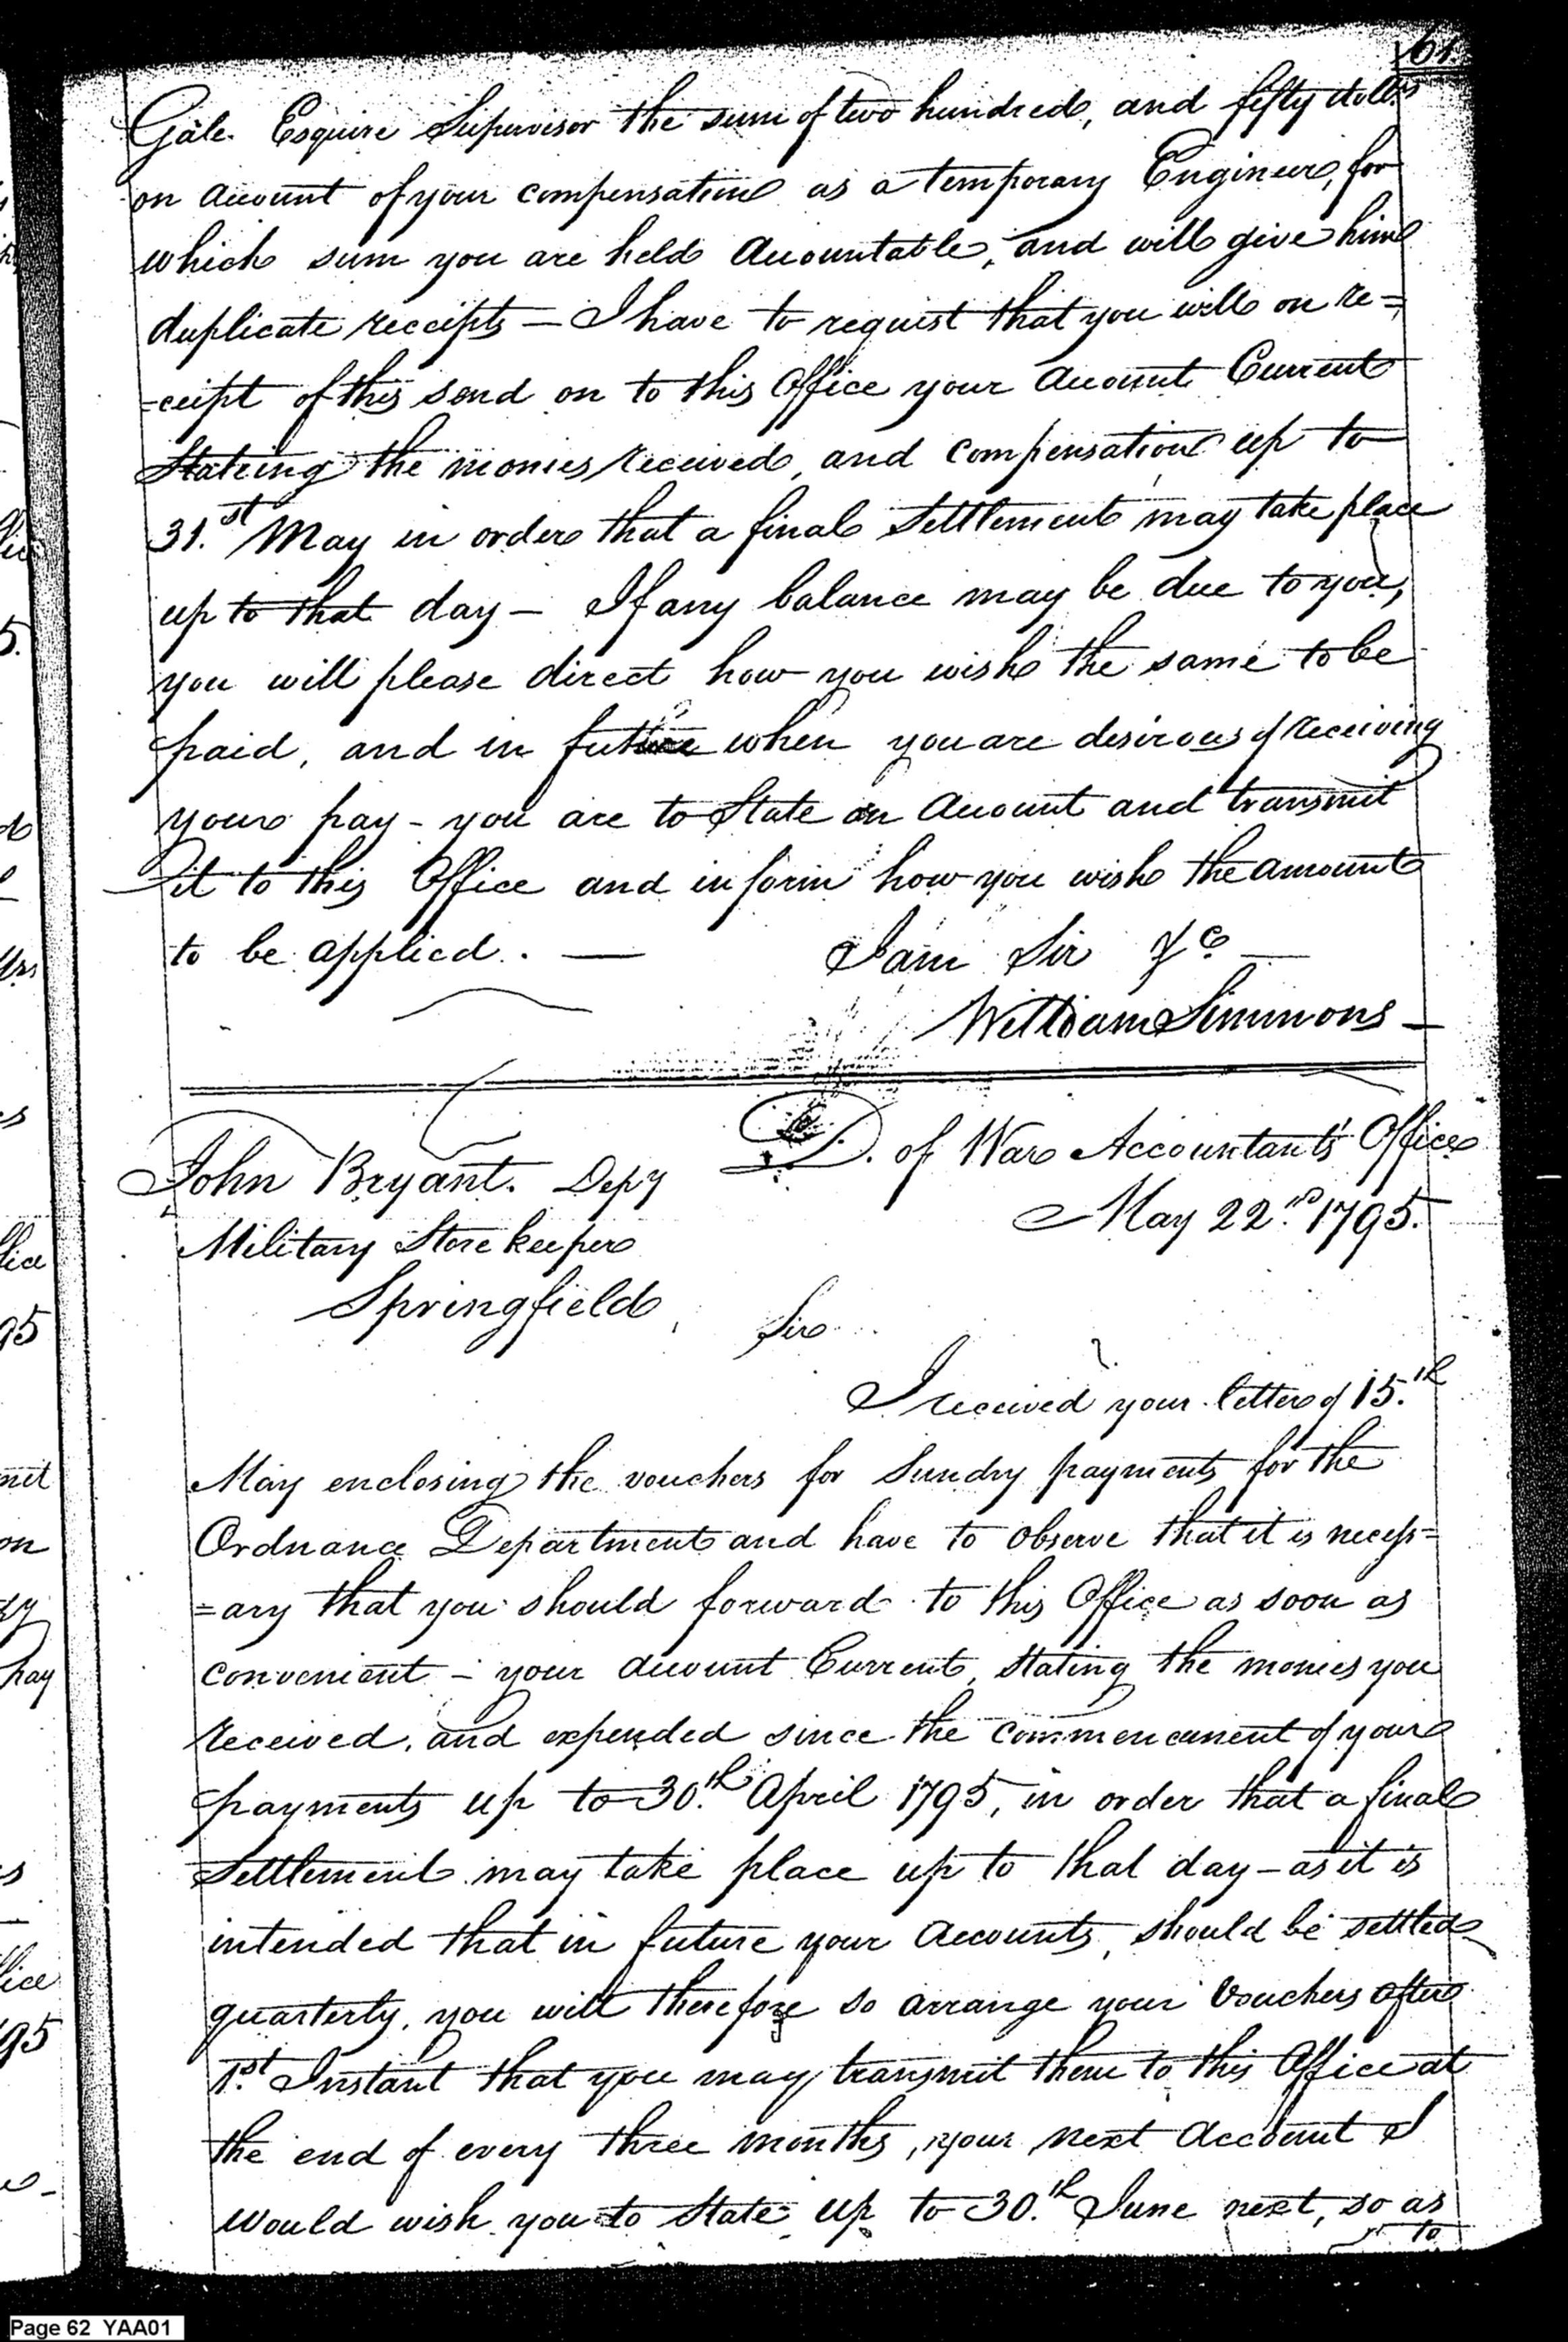 61.
Gale Esquire Supervisor the sum of two hundred, and fifty dolls
on account of your compensation as a temporary Engineer, for
which sum you are held accountable, and will give him
duplicate receipts — I have to request that you will on re=
=ceipt of this send on to this Office your account Current
Stateing the monies received, and compensation up to
31.st May in order that a final Settlement may take place
up to that day — If any balance may be due to you,
you will please direct how you wish the same to be
paid, and in future when you are desirous of receiving
your pay - you are to State an account and transmit
it to this Office and inform how you wish the amount
to be applied. —
I am Sir &c —
William Simmons —
D. of War Accountant's Office
May 22.nd 1795.
John Bryant. Depy
Military Store keeper
Springfield,
Sir
I received your letter of 15.th
May enclosing the vouchers for Sundry payments for the
Ordnance Department and have to observe that it is necess=
=ary that you should forward to this Office as soon as
convenient - your account Current, Stating the monies you
received, and expended since the commencement of your
payments up to 30.th April 1795, in order that a final
Settlement may take place up to that day - as it is
intended that in future your accounts, should be settled
quarterly, you will therefore so arrange your Vouchers after
1.st Instant that you may transmit them to this Office at
the end of every three months, your next account I
would wish you to State up to 30.th June next, so as
to
Page 62 YAA01